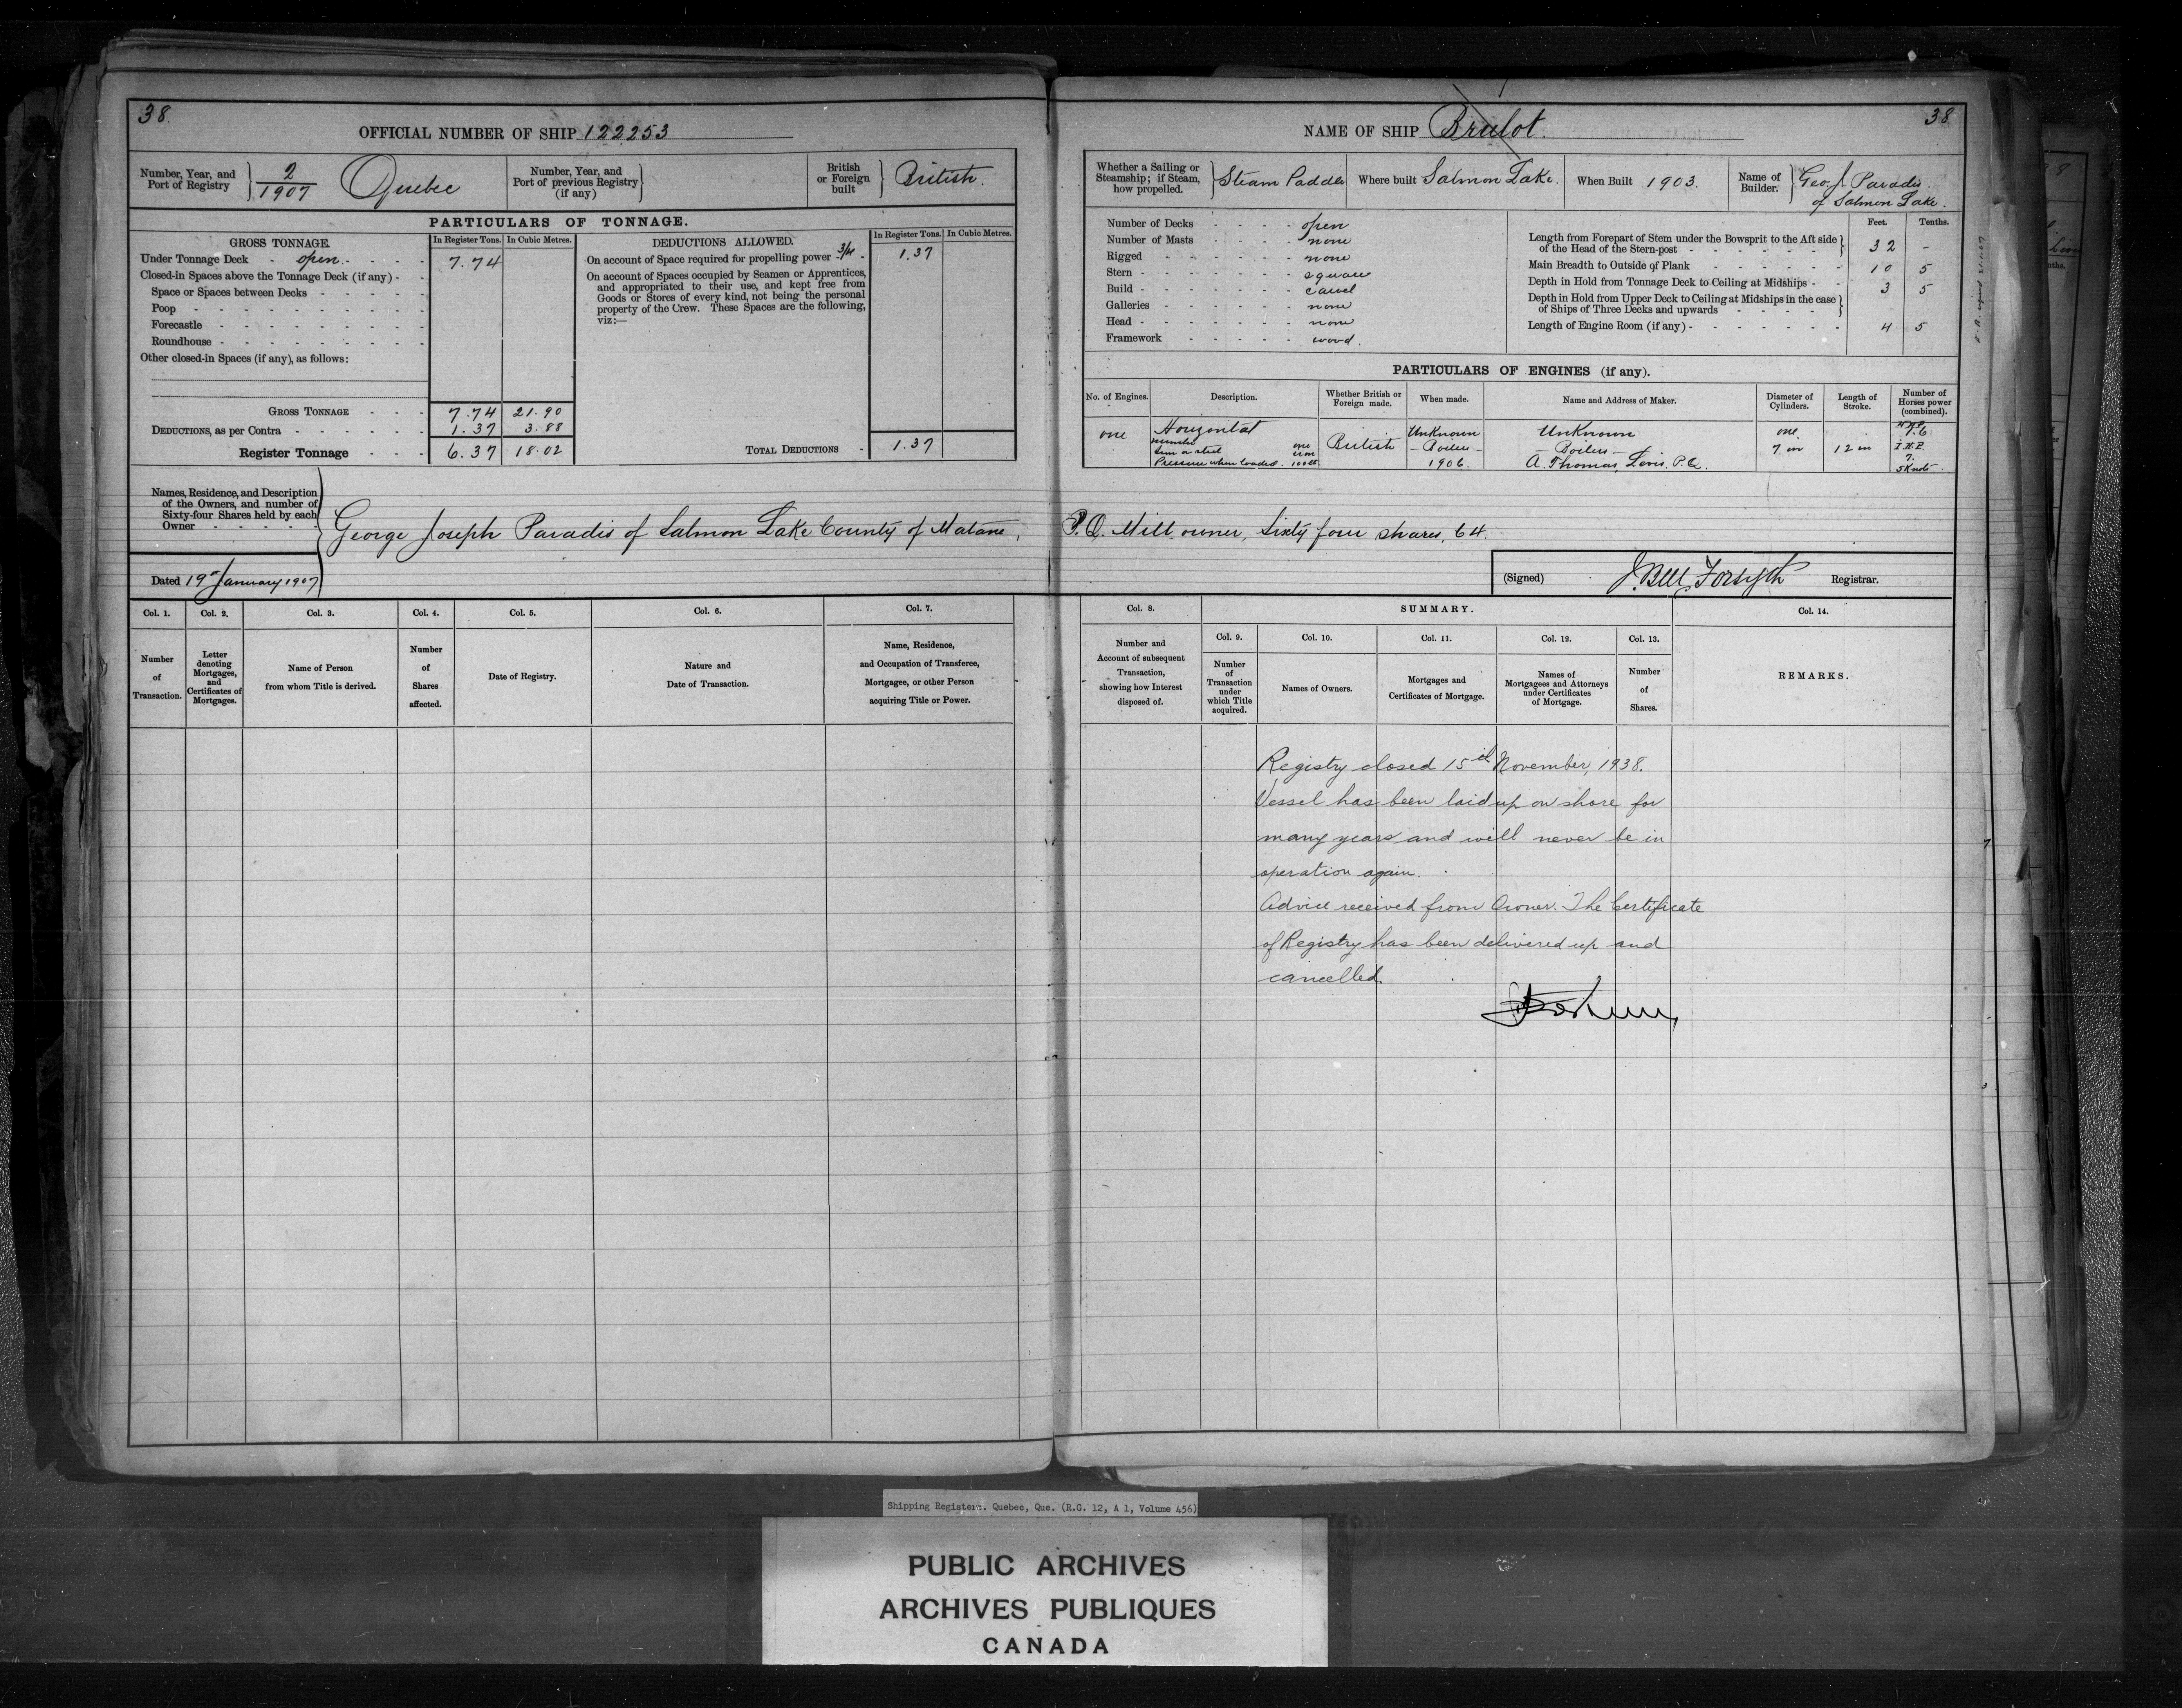 38.
OFFICIAL NUMBER OF SHIP 122253
Number, Year, and Port of Registry } 2/1907 Quebec
Number, Year, and Port of previous Registry (if any) }
British or Foreign built } British.
PARTICULARS OF TONNAGE.
GROSS TONNAGE. In Register Tons. In Cubic Metres.
DEDUCTIONS ALLOWED. In Register Tons. In Cubic Metres.
Under Tonnage Deck - open - 7.74
Closed-in Spaces above the Tonnage Deck (if any) -
Space or Spaces between Decks
Poop
Forecastle
Roundhouse
Other closed-in Spaces (if any), as follows:
On account of Space required for propelling power - 1.37
On account of Spaces occupied by Seamen or Apprentices,
and appropriated to their use, and kept free from
Goods or Stores of every kind, not being the personal
property of the Crew. These Spaces are the following,
viz:—
GROSS TONNAGE 7.74 21.90
DEDUCTIONS, as per Contra 1.37 3.88
Register Tonnage 6.37 18.02
TOTAL DEDUCTIONS - 1.37
Names, Residence, and Description
of the Owners, and number of
Sixty-four Shares held by each
Owner
George Joseph Paradis of Salmon Lake County of Matane,
Dated 19th January 1907
Col. 1. Col. 2. Col. 3. Col. 4. Col. 5. Col. 6. Col. 7.
Number of Transaction.
Letter denoting Mortgages, and Certificates of Mortgages.
Name of Person from whom Title is derived.
Number of Shares affected.
Date of Registry.
Nature and Date of Transaction.
Name, Residence, and Occupation of Transferee, Mortgagee, or other Person acquiring Title or Power.
38
NAME OF SHIP Brulot.
Whether a Sailing or Steamship; if Steam, how propelled. } Steam Paddle
Where built Salmon Lake.
When Built 1903.
Name of Builder. } Geo. J. Paradis.
of Salmon Lake.
Number of Decks open
Number of Masts none
Rigged none
Stern square
Build carvel
Galleries none
Head none
Framework wood.
Feet. Tenths.
Length from Forepart of Stem under the Bowsprit to the Aft side
of the Head of the Stern-post 32 -
Main Breadth to Outside of Plank 10 5
Depth in Hold from Tonnage Deck to Ceiling at Midships 3 5
Depth in Hold from Upper Deck to Ceiling at Midships in the case
of Ships of Three Decks and upwards
Length of Engine Room (if any) 4 5
PARTICULARS OF ENGINES (if any).
No. of Engines. Description. Whether British or Foreign made. When made. Name and Address of Maker. Diameter of Cylinders. Length of Stroke. Number of Horses power (combined).
one Horizontal British Unknown Unknown one
Number one
Iron or steel
Pressure when loaded. 100 lb
- Boilers -
1906.
- Boilers -
A. Thomas, Levis, P.Q.
7 in 12 in
N.H.P.
I.H.P.
7.
5 Knots
P.Q. Mill owner, Sixty four shares, 64.
(Signed) J. Bell Forsyth Registrar.
Col. 8. SUMMARY. Col. 14.
Col. 9. Col. 10. Col. 11. Col. 12. Col. 13.
Number and Account of subsequent Transaction, showing how Interest disposed of.
Number of Transaction under which Title acquired.
Names of Owners.
Mortgages and Certificates of Mortgage.
Names of Mortgagees and Attorneys under Certificates of Mortgage.
Number of Shares.
REMARKS.
Registry closed 15th November, 1938.
Vessel has been laid up on shore for
many years and will never be in
operation again.
Advice received from Owner. The Certificate
of Registry has been delivered up and
cancelled.
Shipping Registers. Quebec, Que. (R.G. 12, A 1, Volume 456)
PUBLIC ARCHIVES
ARCHIVES PUBLIQUES
CANADA